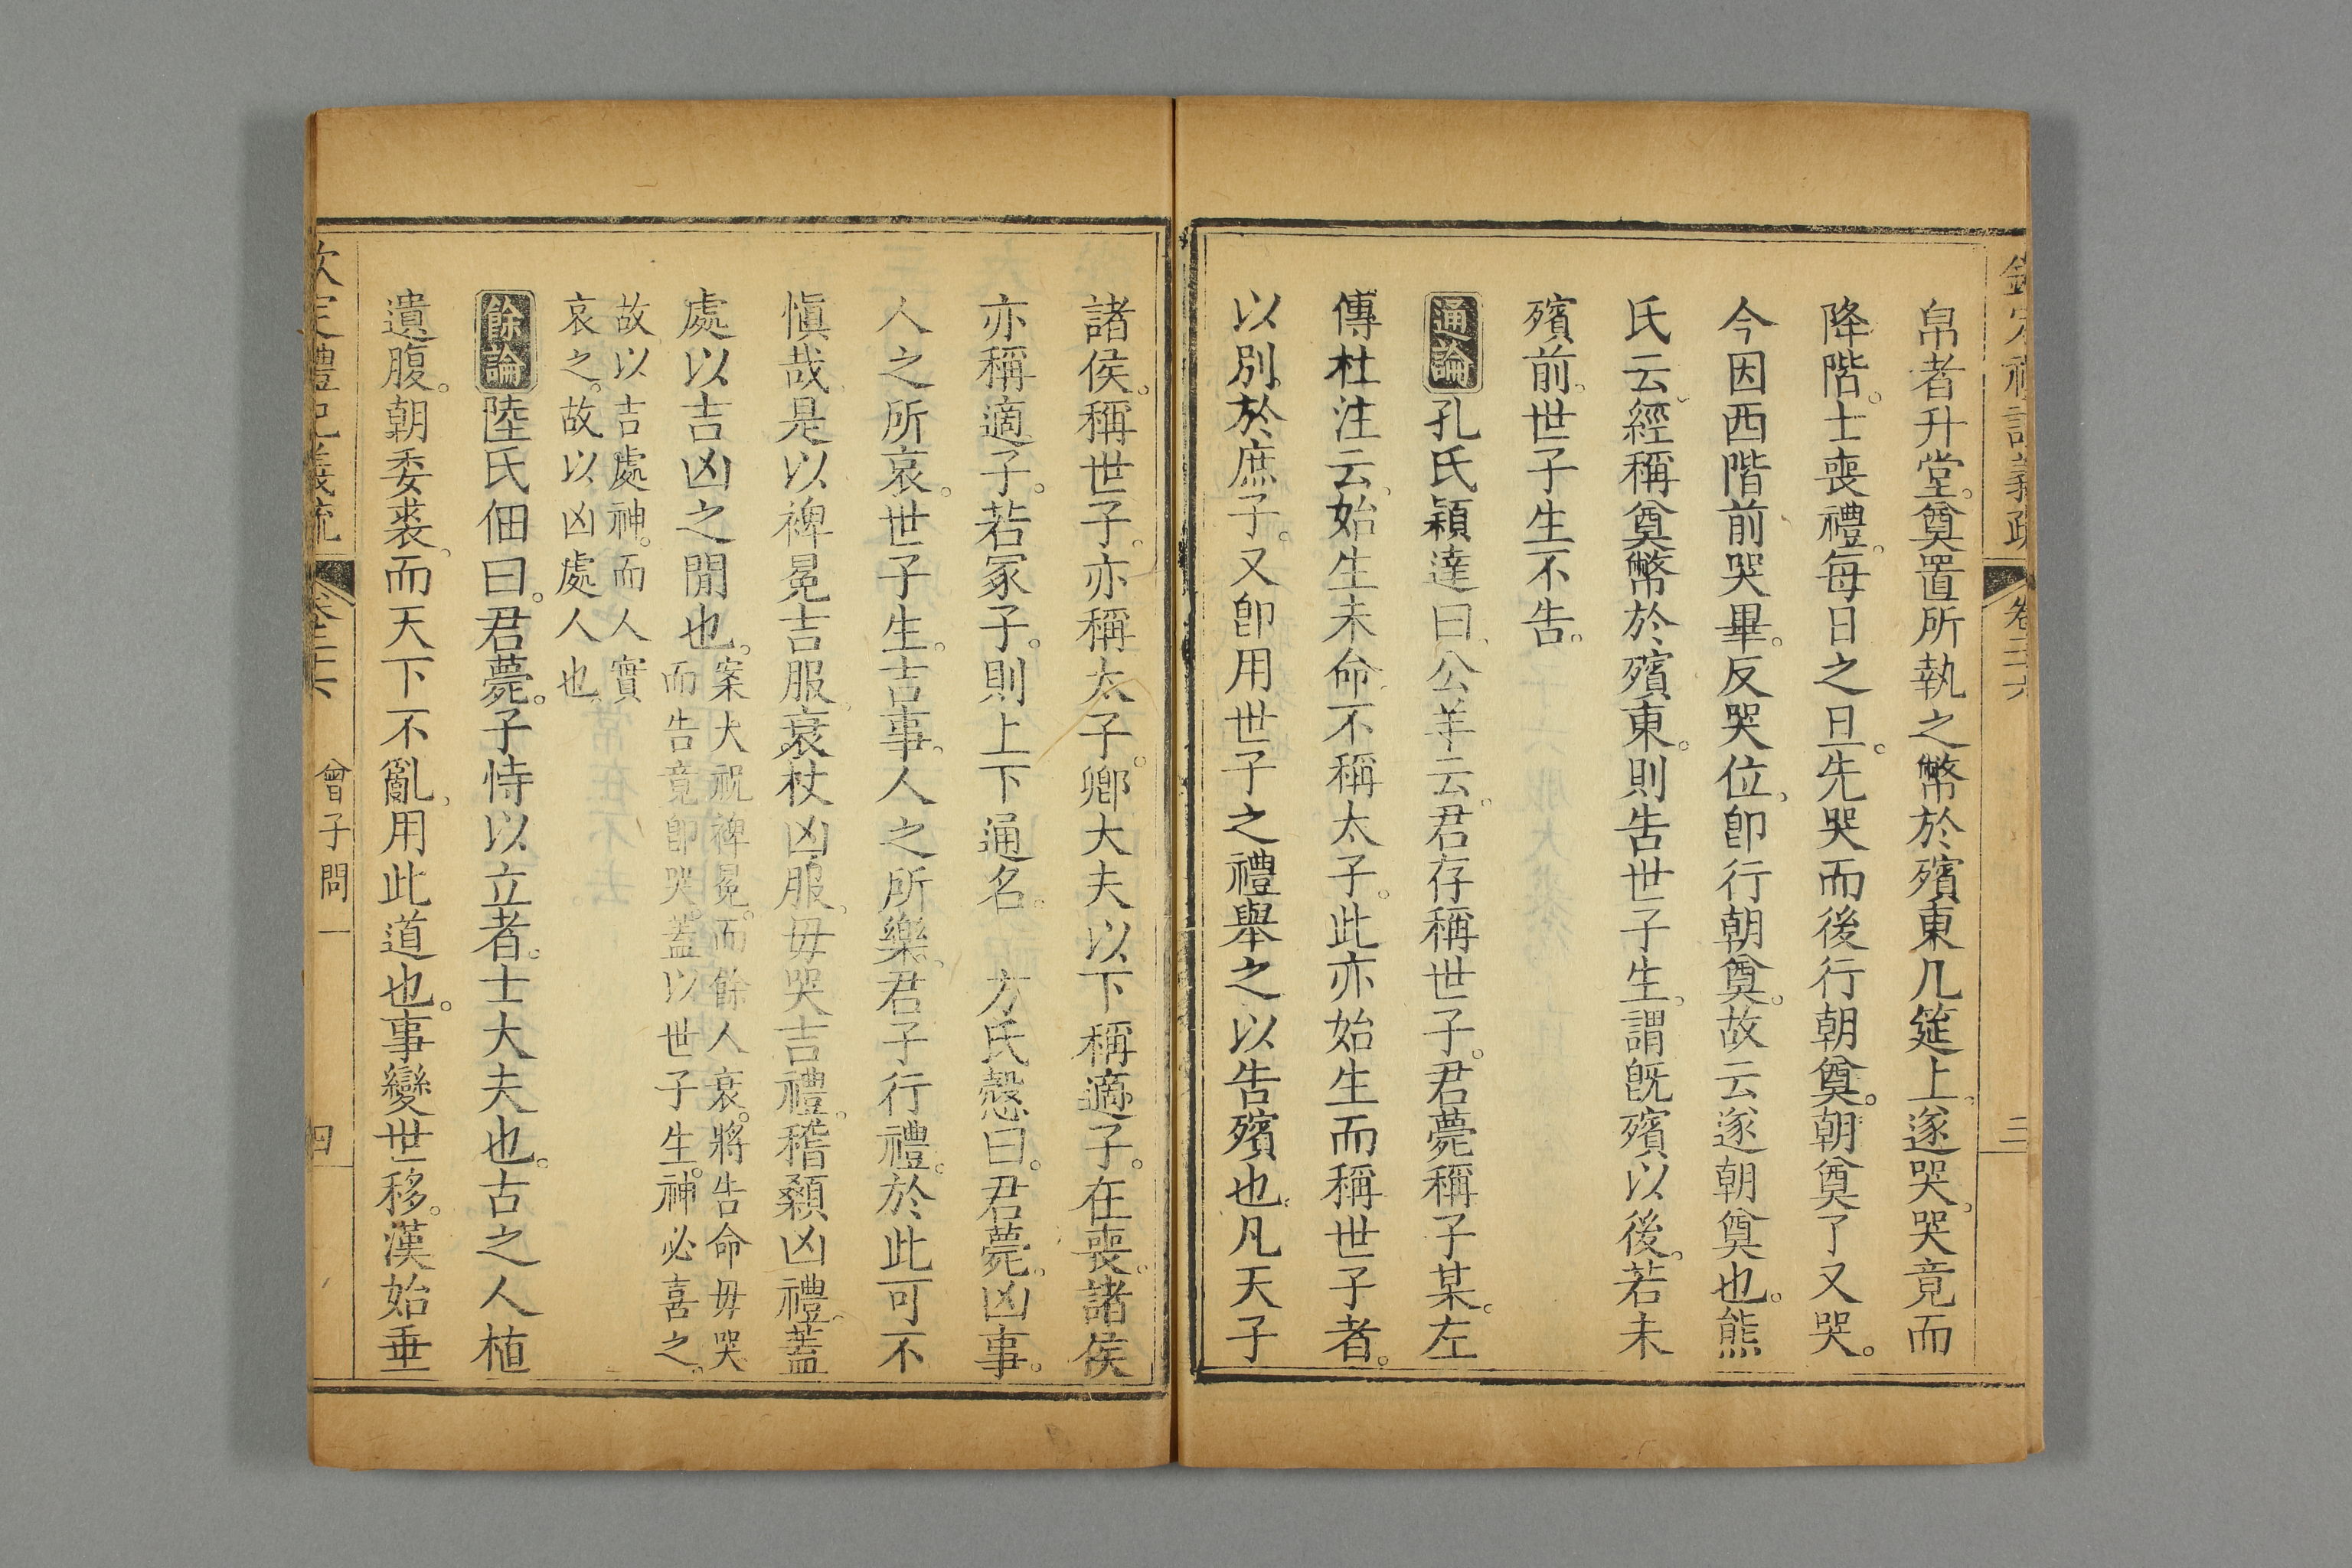 欽定禮記義疏 卷二十六 三
帛者升堂。奠置所執之幣於殯東几筵上。遂哭。哭竟而
降階。士喪禮。每日之旦。先哭而後行朝奠。朝奠了又哭。
今因西階前哭畢。反哭位、卽行朝奠。故云遂朝奠也。熊
氏云、經稱奠幣於殯東。則告世子生。謂旣殯以後。若未
殯前。世子生不告。
通論孔氏穎達曰、公羊云。君存稱世子。君薨稱子某。左
傳杜注云、始生未命、不稱太子。此亦始生而稱世子者。
以別於庶子。又卽用世子之禮舉之以告殯也。凡天子
諸侯。稱世子。亦稱太子。卿大夫以下稱適子。在喪。諸侯
亦稱適子。若冢子。則上下通名。 方氏慤曰。君薨。凶事。
人之所哀。世子生。吉事。人之所樂。君子行禮。於此可不
愼哉。是以裨冕吉服、衰杖凶服、毋哭吉禮。稽顙凶禮。蓋
處以吉凶之閒也。案大祝裨冕。而餘人衰。將告命毋哭
而告竟卽哭。蓋以世子生。神必喜之。
故以吉處神。而人實
哀之。故以凶處人也
餘論陸氏佃曰。君薨。子恃以立者。士大夫也。古之人植
遺腹。朝委裘、而天下不亂、用此道也。事變世移。漢始垂
欽定禮記義疏 卷二十六 曾子問一 四